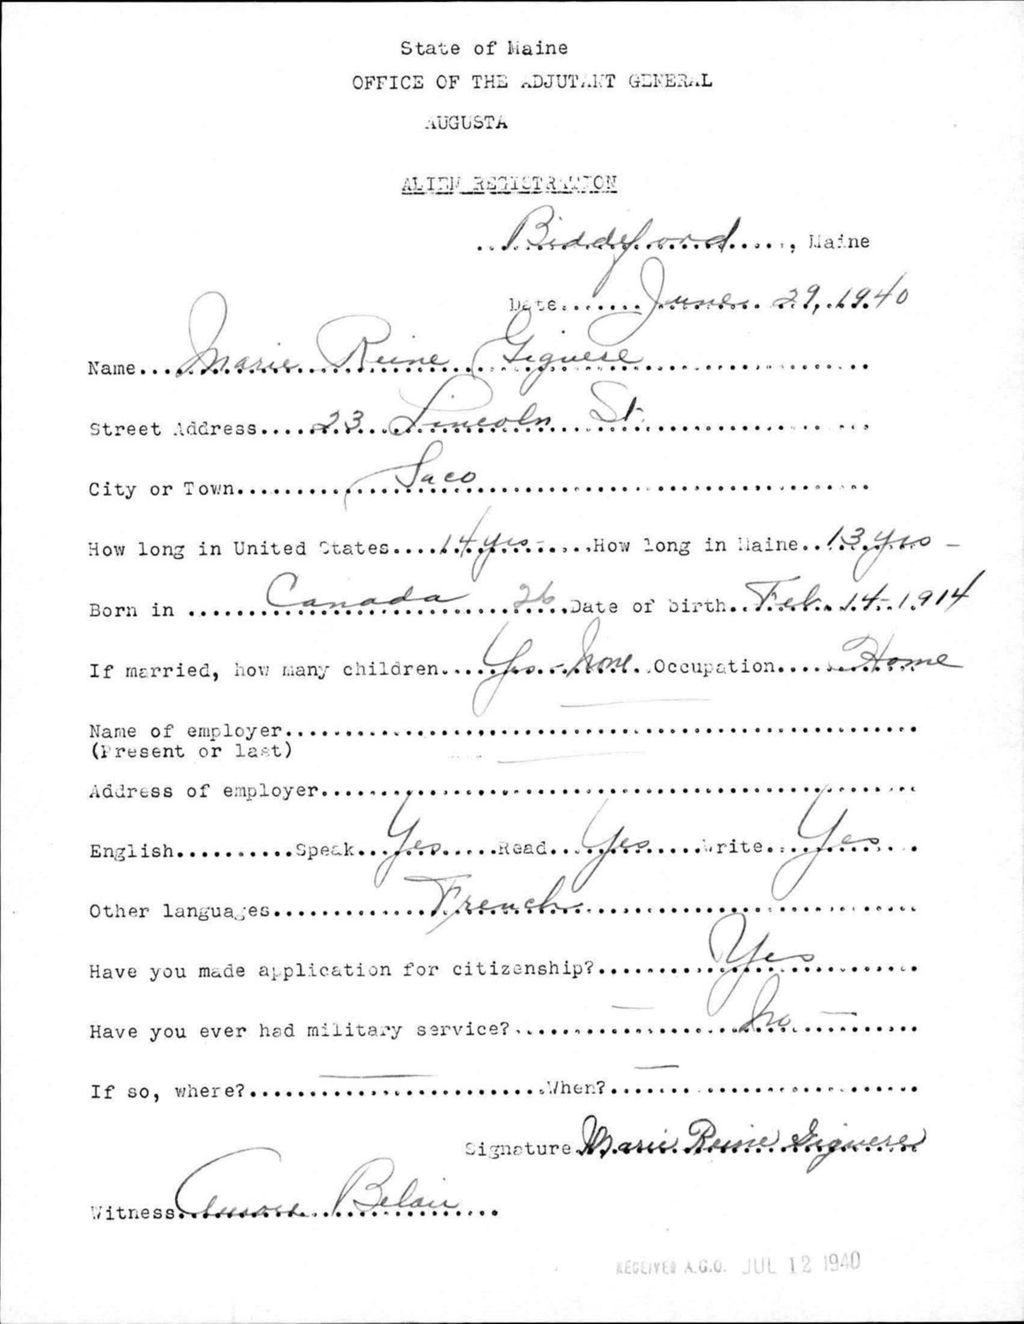 State of Maine
OFFICE OF THE ADJUTANT GENERAL
AUGUSTA
ALIEN REGISTRATION
Biddeford, Maine
Date June 29, 1940
Name Marie Reine Giguere
Street Address 23 Lincoln St.
City or Town Saco
How long in United States 14 yrs - How long in Maine 13 yrs -
Born in Canada 26 Date of birth Feb. 14 - 1914
If married, how many children Yes - None Occupation Home
Name of employer
(Present or last)
Address of employer
English Speak Yes Read Yes Write Yes
Other languages French
Have you made application for citizenship? Yes
Have you ever had military service? - No -
If so, where? - When? -
Signature Marie Reine Giguere
Witness Belair
RECEIVED A.G.O. JUL 12 1940